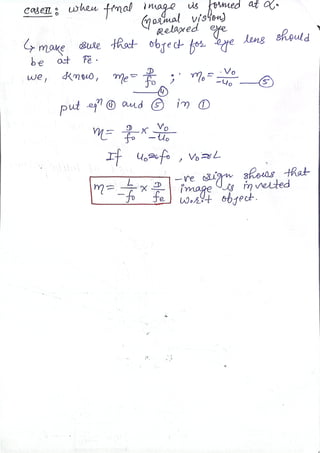 Case II : when final image is formed at ∝.
(normal vision)
Relaxed eye
↳ make sure that object for eye lens should
be at Fe.
we, know, me = D/fo ; mo = Vo/-uo —⑤
—④
put eqn ④ and ⑤ in ①
m = D/fo × Vo/-uo
If uo≈fo , Vo≈L
m = L/-fo × D/fe
-ve sign shows that
image is inverted
w.r.t object.